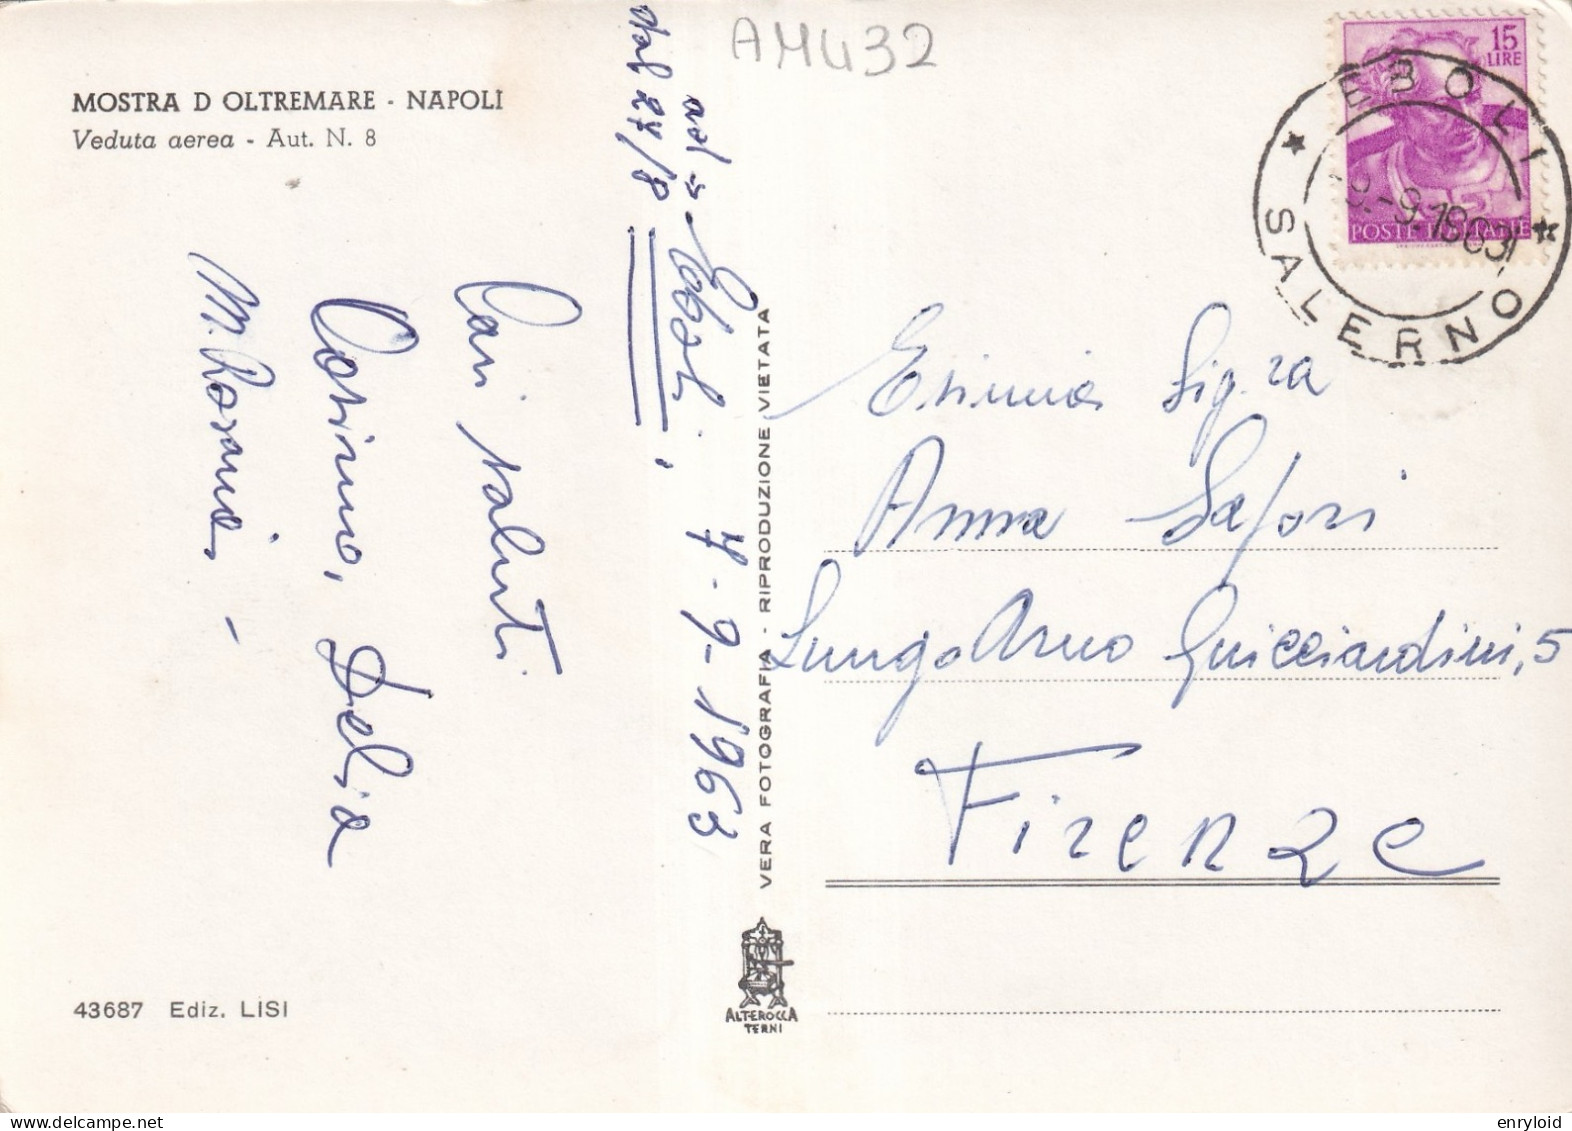 AMU32
MOSTRA D OLTREMARE - NAPOLI
Veduta aerea - Aut. N. 8
dal 27/8
Eboli, 7-9-1963
Cari saluti
Cosimo, Delia
M. Rosaria -
VERA FOTOGRAFIA - RIPRODUZIONE VIETATA
15
LIRE
POSTE ITALIANE
EBOLI
SALERNO
9.-9.1963
Esimia Sig.ra
Anna Safori
LungoArno Guicciardini, 5
Firenze
43687 Ediz. LISI
ALTEROCCA
TERNI
delcampe.net
enryloid